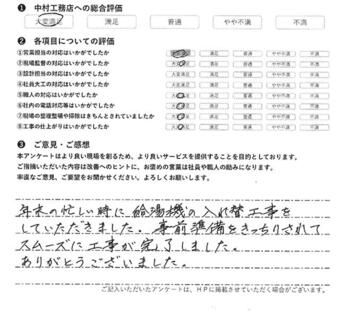 ❶ 中村工務店への総合評価
大変満足 満足 普通 やや不満 不満
❷ 各項目についての評価
①営業担当の対応はいかがでしたか 満足 普通 やや不満 不満
②現場監督の対応はいかがでしたか 大変満足 満足 普通 やや不満 不満
③設計担当の対応はいかがでしたか 大変満足 満足 普通 やや不満 不満
④社員大工の対応はいかがでしたか 大変満足 満足 普通 やや不満 不満
⑤職人の対応はいかがでしたか 大変満足 満足 普通 やや不満 不満
⑥社内の電話対応等はいかがでしたか 大変満足 満足 普通 やや不満 不満
⑦現場の整理整頓や掃除はきちんとされていましたか 大変満足 満足 普通 やや不満 不満
⑧工事の仕上がりはいかがでしたか 大変満足 満足 普通 やや不満 不満
❸ ご意見・ご感想
本アンケートはより良い現場を創るため、より良いサービスを提供することを目的としております。
ご指摘いただいた内容は改善へのヒントに、お褒めの言葉は社員や職人の励みになります。
率直なご意見、ご要望をお聞かせください。よろしくお願いします。
年末の忙しい時に給湯機の入れ替工事を
していただきました。事前準備をきっちりされて
スムーズに工事が完了しました。
ありがとうございました。
ご記入いただいたアンケートは、HPに掲載させていただく場合がございます。